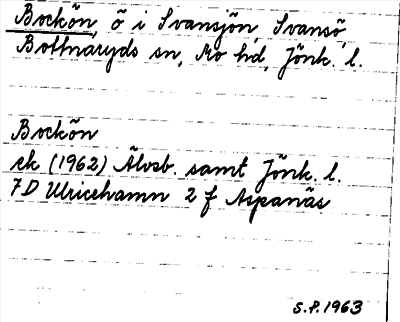 Bockön, ö i Svansjön, Svansö,
Bottnaryds sn, Mo hd, Jönk. l.
Bockön
ek (1962) Älvsb. samt Jönk. l.
7D Ulricehamn 2 f Aspanäs
S.P. 1963